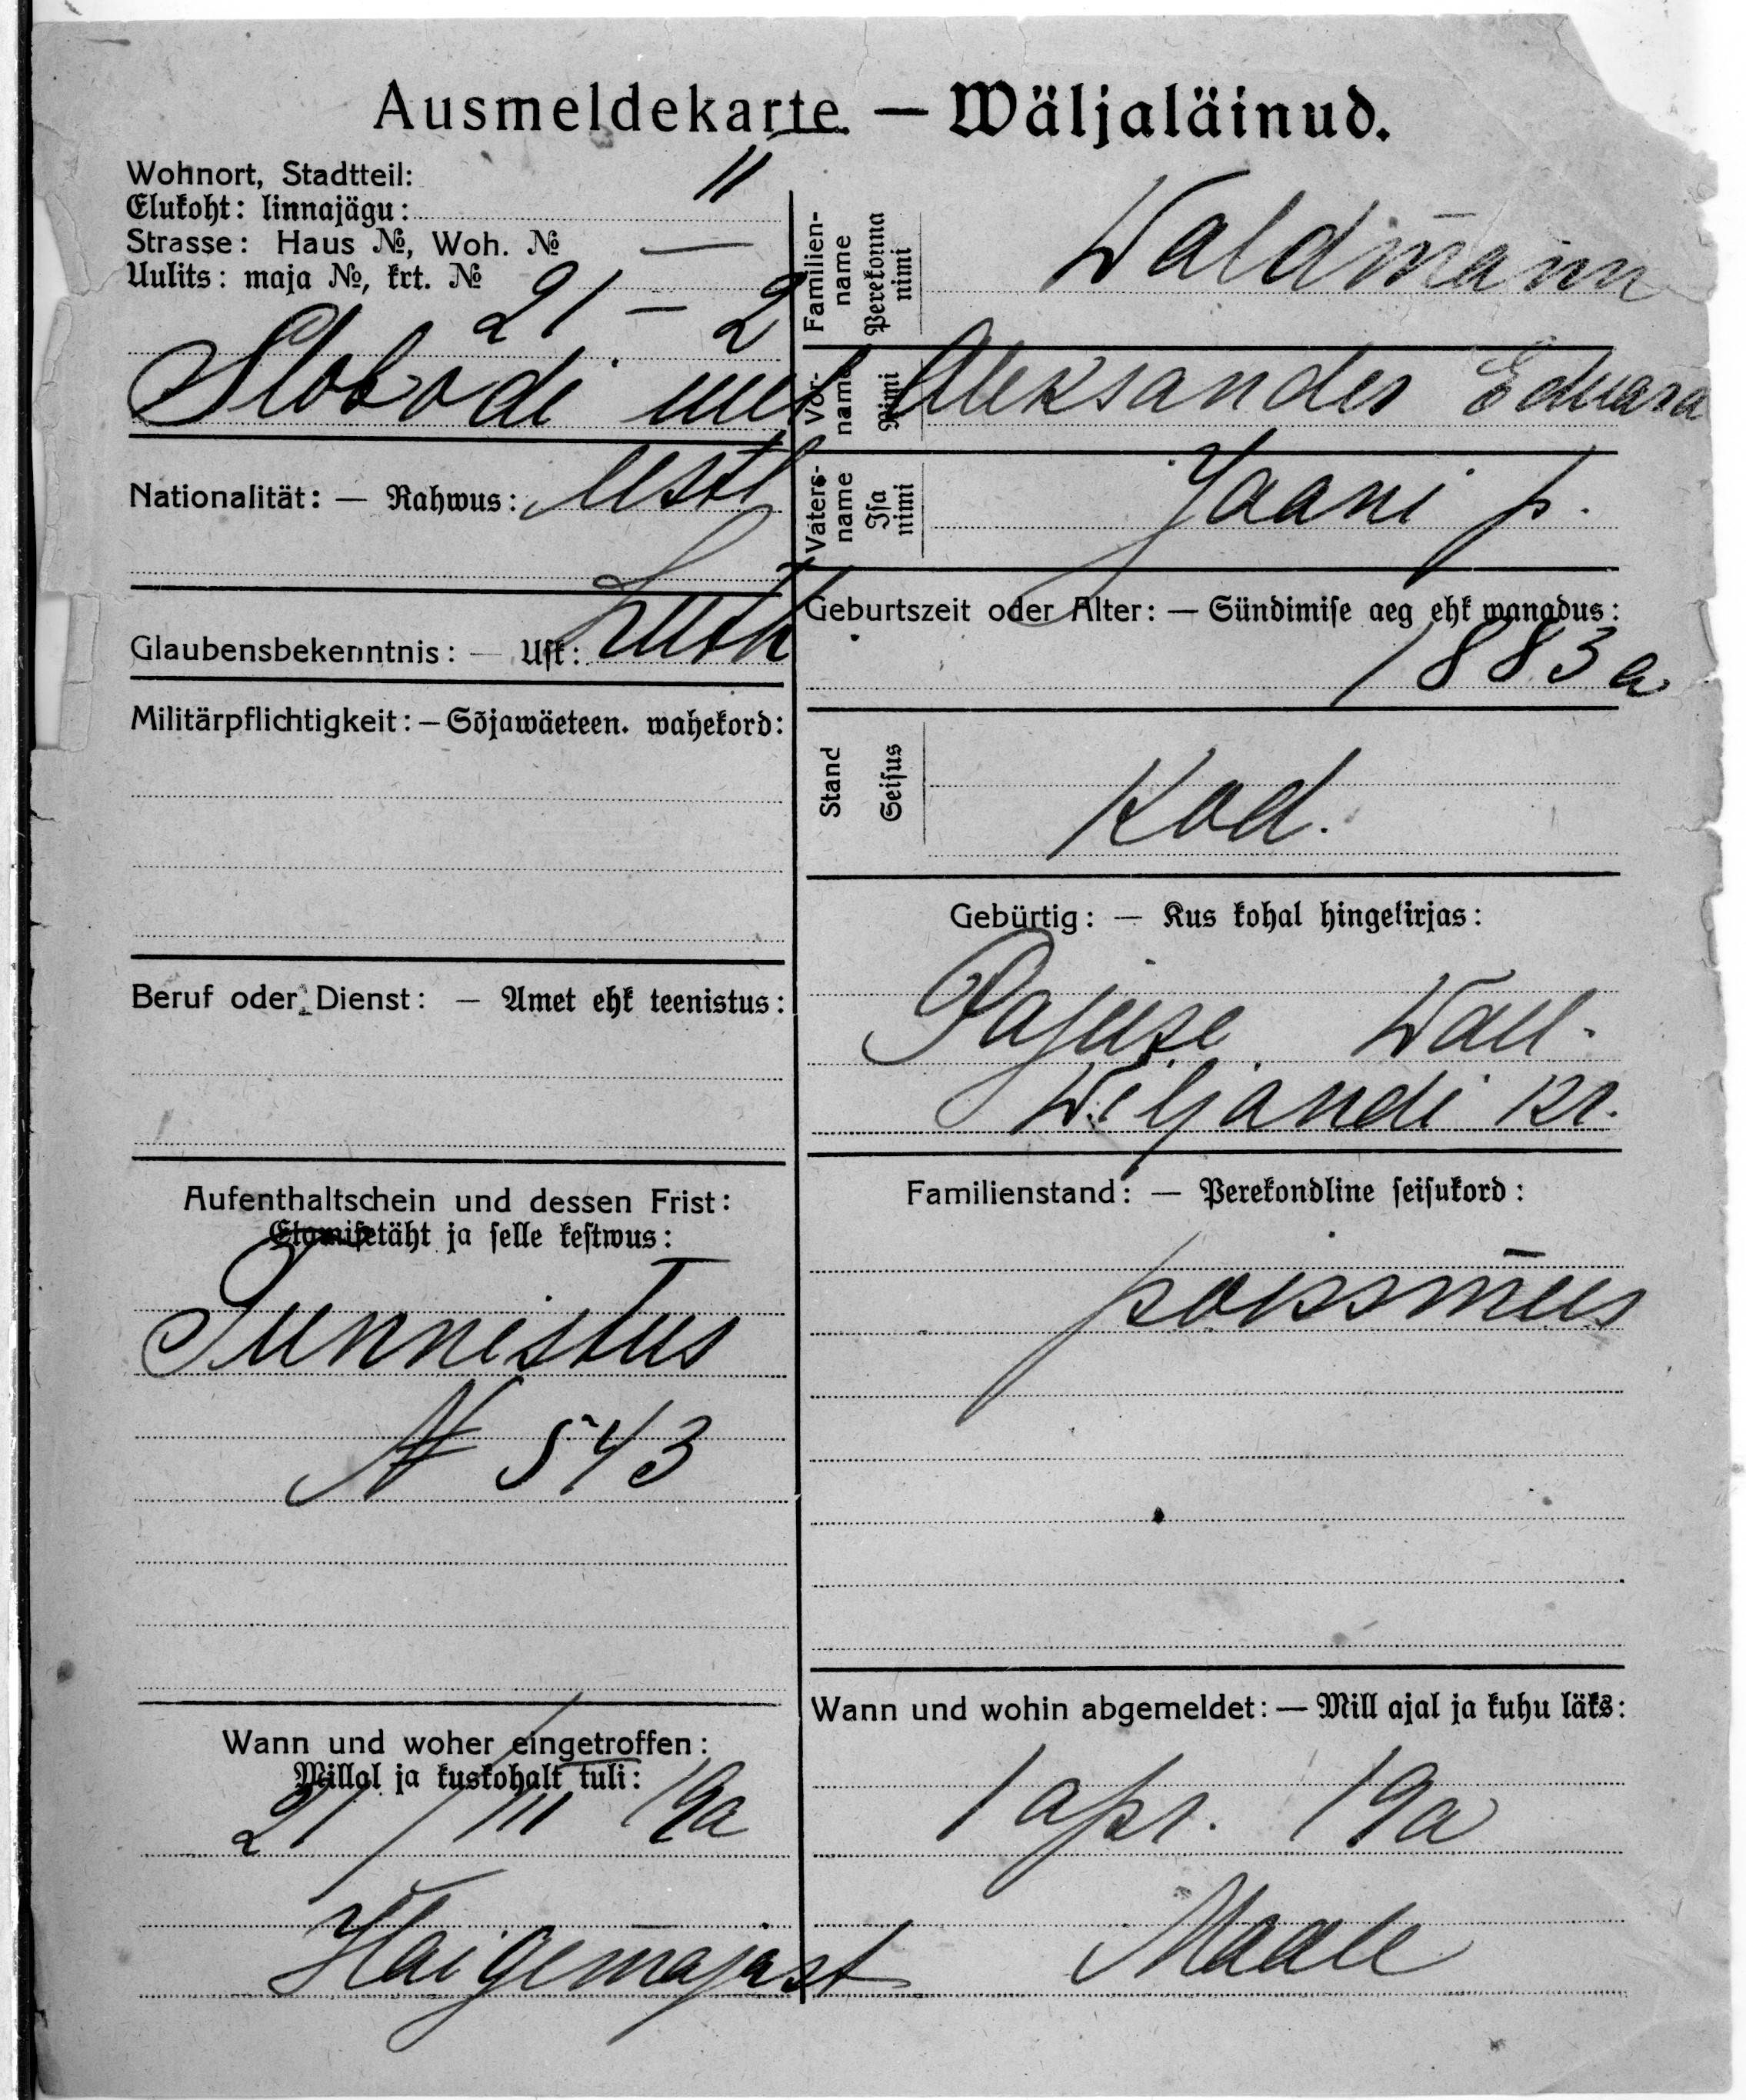 Ausmeldekarte. — Wäljaläinud.
Wohnort, Stadtteil:
Elukoht: linnajägu: II
Strasse: Haus №, Woh. № —
Uulits: maja №, krt. №
21 — 2
Slobodi uul
Nationalität: — Rahwus: eestl
Glaubensbekenntnis: — Usk: Luth
Militärpflichtigkeit: — Sõjawäeteen. wahekord:
Beruf oder Dienst: — Amet ehk teenistus:
Aufenthaltschein und dessen Frist:
Elamisetäht ja selle kestwus:
Tunnistus
№ 543
Wann und woher eingetroffen:
Millal ja kuskohalt tuli:
21/III 19a
Haigemajast
Familien-
name
Perekonna
nimi
Waldmann
Vor-
name
Nimi
Aleksander Eduard
Vaters-
name
Isa
nimi
Jaani p.
Geburtszeit oder Alter: — Sündimise aeg ehk wanadus:
1883 a
Stand
Seisus
Kod.
Gebürtig: — Kus kohal hingekirjas:
Pajuse Wall.
Wiljandi kr.
Familienstand: — Perekondline seisukord:
poissmees
Wann und wohin abgemeldet: — Mill ajal ja kuhu läks:
1 apr. 19a
Maale